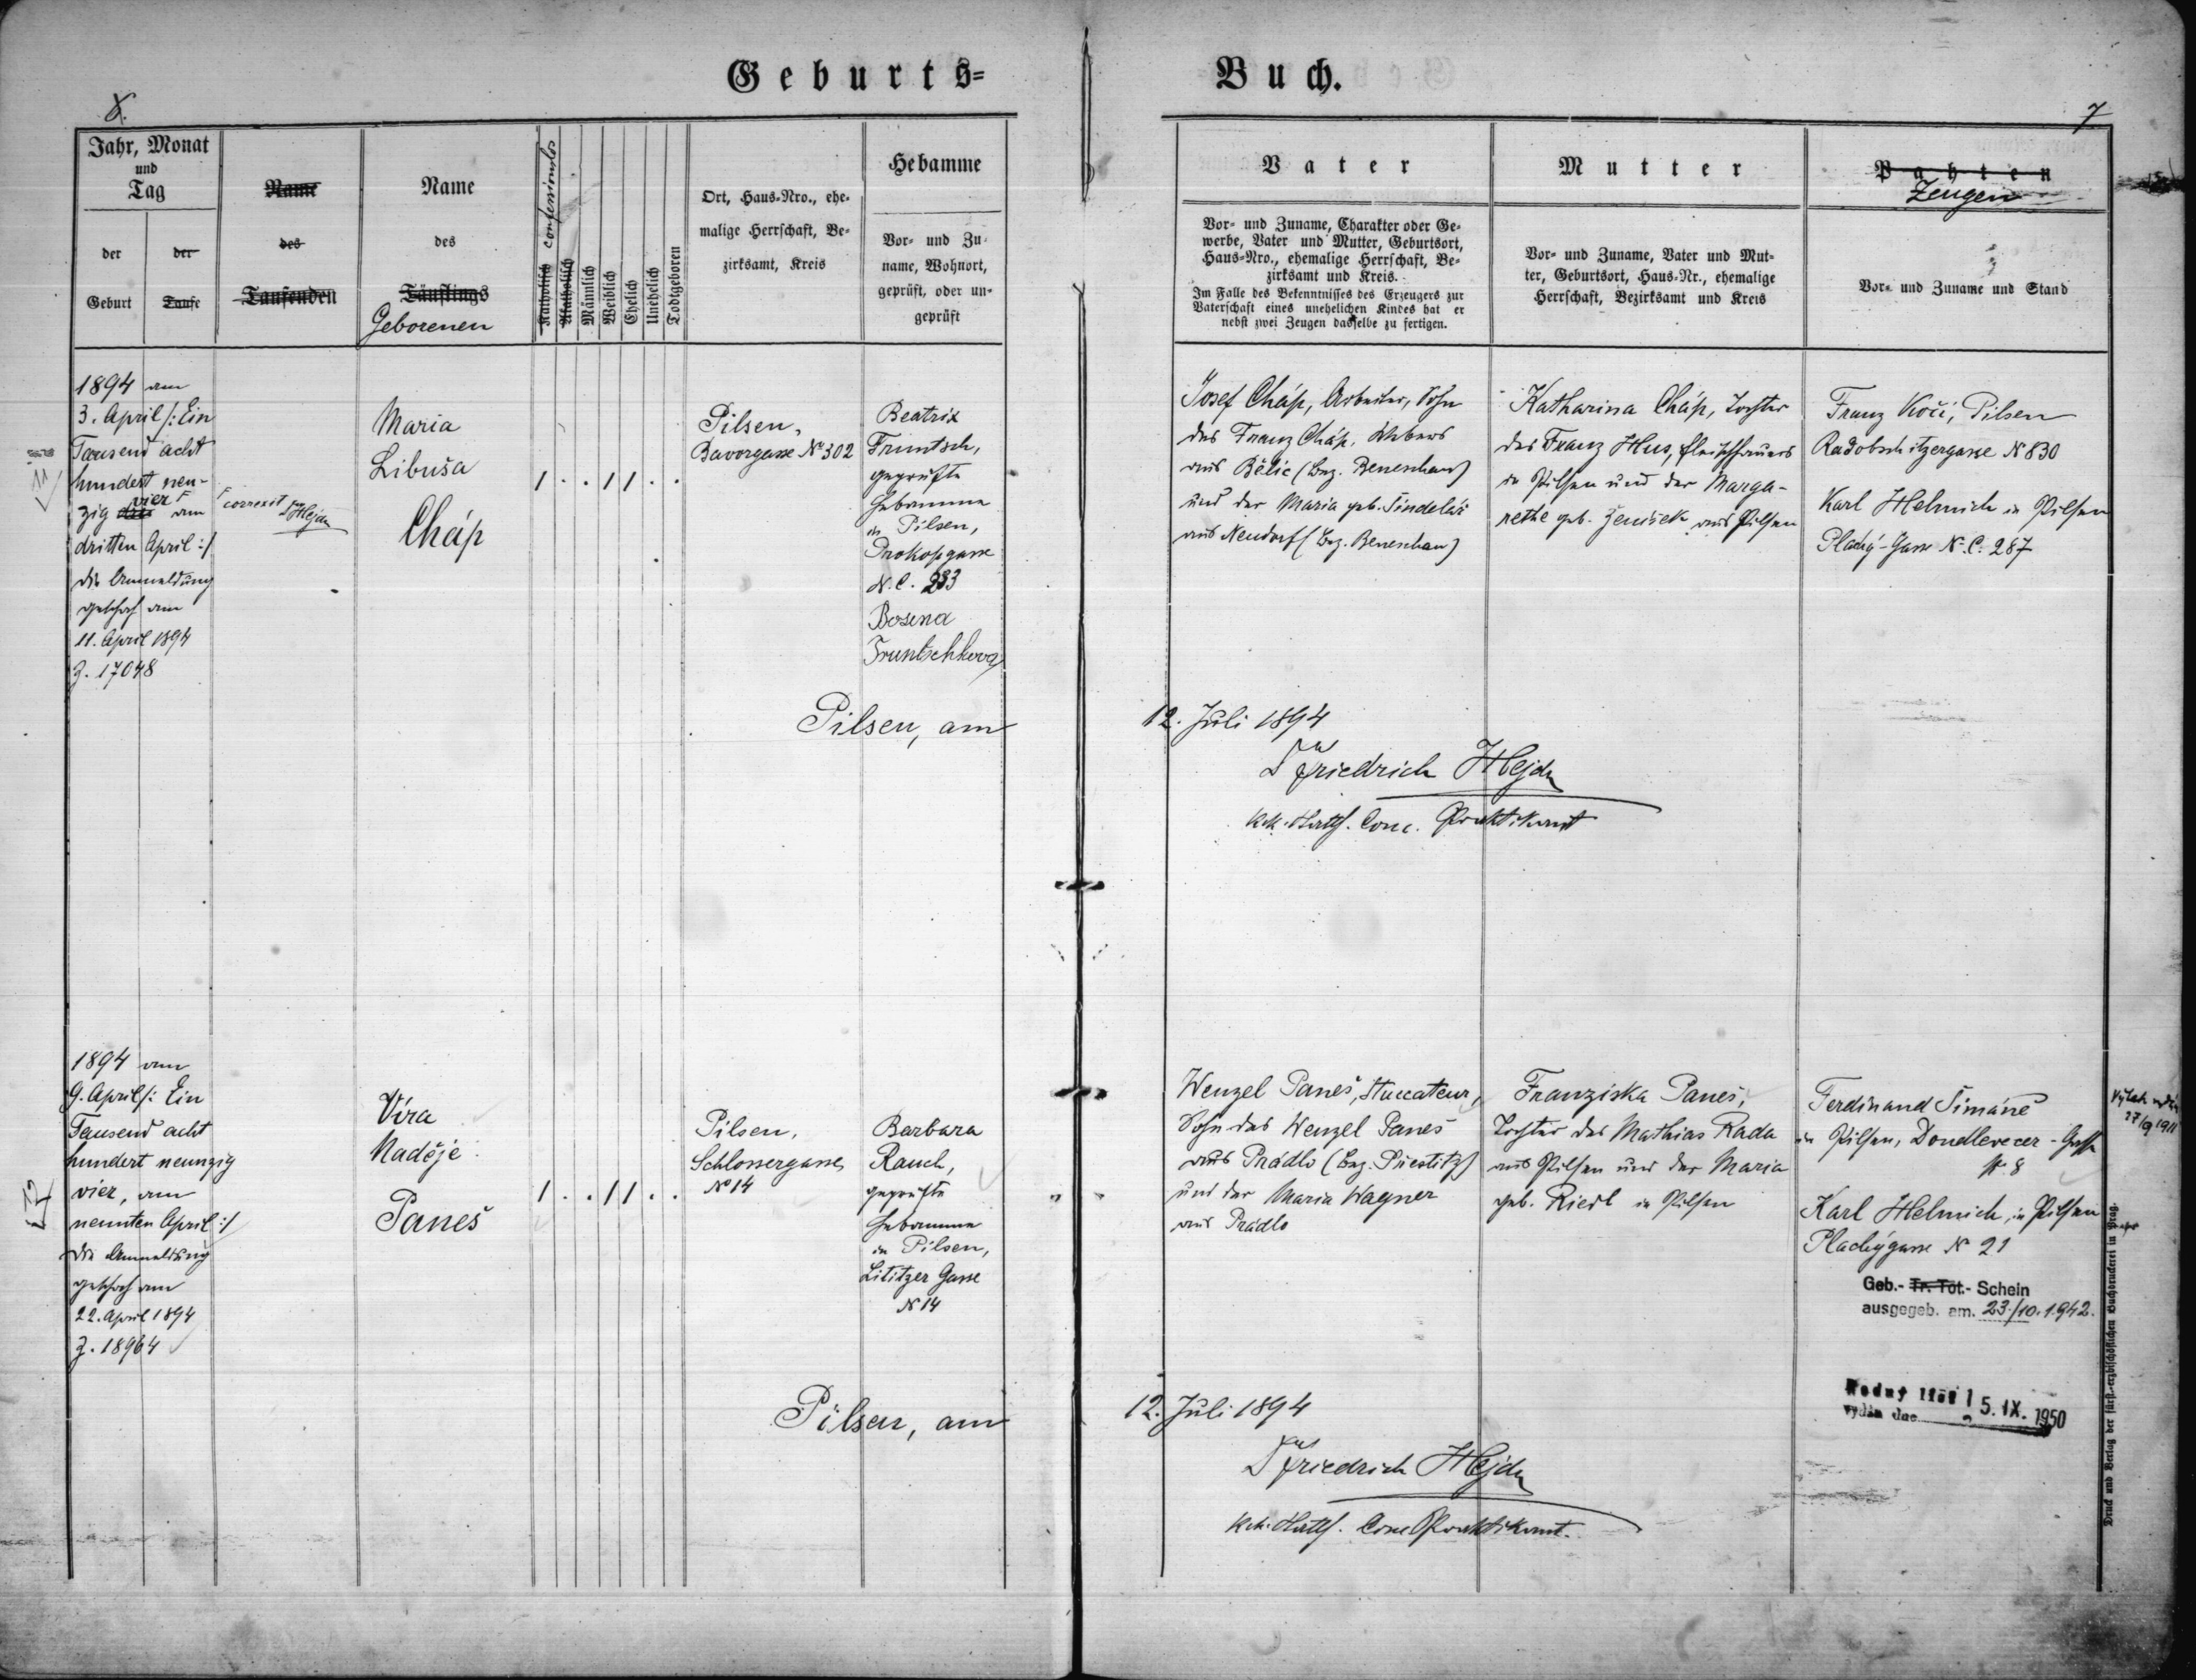 Geburts=
Buch.
7
Jahr, Monat
und
Tag
der
Geburt
der
Taufe
Name
des
Taufenden
Name
des
Täuflings
Geborenen
Katholisch
confessionslos
Akatholisch
Männlich
Weiblich
Ehelich
Unehelich
Todtgeboren
Ort, Haus-Nro., ehe-
malige Herrschaft, Be-
zirksamt, Kreis
Hebamme
Vor- und Zu-
name, Wohnort,
geprüft, oder un-
geprüft
Vater
Vor- und Zuname, Charakter oder Ge-
werbe, Vater und Mutter, Geburtsort,
Haus-Nro., ehemalige Herrschaft, Be-
zirksamt und Kreis.
Im Falle des Bekenntnisses des Erzeugers zur
Vaterschaft eines unehelichen Kindes hat er
nebst zwei Zeugen dasselbe zu fertigen.
Mutter
Vor- und Zuname, Vater und Mut-
ter, Geburtsort, Haus-Nr., ehemalige
Herrschaft, Bezirksamt und Kreis
Pathen
Zeugen
Vor- und Zuname und Stand
11
1894 am
3. April /: Ein
Tausend acht
hundert neun-
zig drei vier am
dritten April :/
die Anmeldung
geschah am
11. April 1894
Z. 17048
correxit Dr Hejda
Maria
Libuša
Cháp
1 . . 1 1 . .
Pilsen,
Bavorgasse No 302
Beatrix
Fruntsch,
geprüfte
Hebamme
in Pilsen,
Prokopgasse
N. C. 233
Bosena
Fruntschkova
Josef Cháp, Arbeiter, Sohn
des Franz Cháp, Webers
aus Bělic (Bez. Beneschau)
und der Maria geb. Šindelář
aus Neudorf (Bez. Beneschau)
Katharina Cháp, Tochter
des Franz Hus, Fleischhauers
in Pilsen und der Marga-
rethe geb. Ženíšek aus Pilsen
Franz Kočí, Pilsen
Radobschitzergasse N 830
Karl Helmich in Pilsen
Plachý-Gasse N. C. 287
Pilsen, am
12. Juli 1894
Dr Friedrich Hejda
k.k. Statth. Conc. Praktikant
12
1894 am
9. April /: Ein
Tausend acht
hundert neunzig
vier, am
neunten April :/
die Anmeldung
geschah am
22. April 1894
Z. 18964
Víra
Naděje
Paneš
1 . . 1 1 . .
Pilsen,
Schlossergasse
No 14
Barbara
Rauch,
geprüfte
Hebamme
in Pilsen,
Lititzer Gasse
N 14
Wenzel Paneš, Stuccateur,
Sohn des Wenzel Paneš
aus Prádlo (Bez. Přestitz)
und der Maria Wagner
aus Prádlo
Franziska Paneš,
Tochter des Mathias Rada
aus Pilsen und der Maria
geb. Riedl in Pilsen
Ferdinand Šimáně
in Pilsen, Doudlevecer-Gasse
N. 8
Karl Helmich, in Pilsen
Plachýgasse N 21
Geb.- Tr. Tot.- Schein
ausgegeb. am. 23./10. 1942.
27/9 1911
Rodný list
vydán dne 15. IX. 1950
Pilsen, am
12. Juli 1894
Dr Friedrich Hejda
k.k. Statth. Conc Praktikant.
Druck und Verlag der fürst-erzbischöflichen Buchdruckerei in Prag.